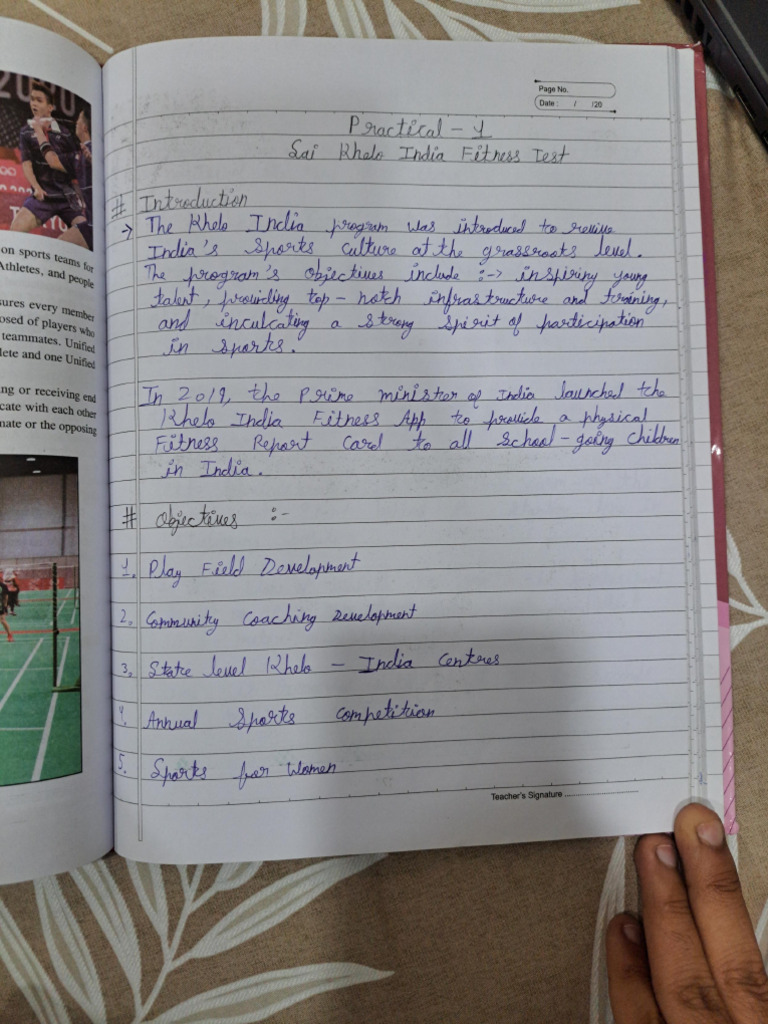 2020
TOKYO
on sports teams for
Athletes, and people
sures every member
osed of players who
teammates. Unified
lete and one Unified
ng or receiving end
cate with each other
nate or the opposing
Page No.
Date : / /20
Practical - 1
Sai Khelo India Fitness Test
# Introduction
→ The Khelo India program was introduced to revive
India's Sports culture at the grassroots level.
The program's objectives include :-> inspiring young
talent, providing top-notch infrastructure and training,
and inculcating a strong spirit of participation
in sports.
In 2019, the Prime minister of India launched the
Khelo India Fitness App to provide a physical
Fitness Report Card to all School-going children
in India.
# Objectives :-
1. Play Field Development
2. Community Coaching Development
3. State level Khelo - India Centres
4. Annual Sports competition
5. Sports for Women
Teacher's Signature